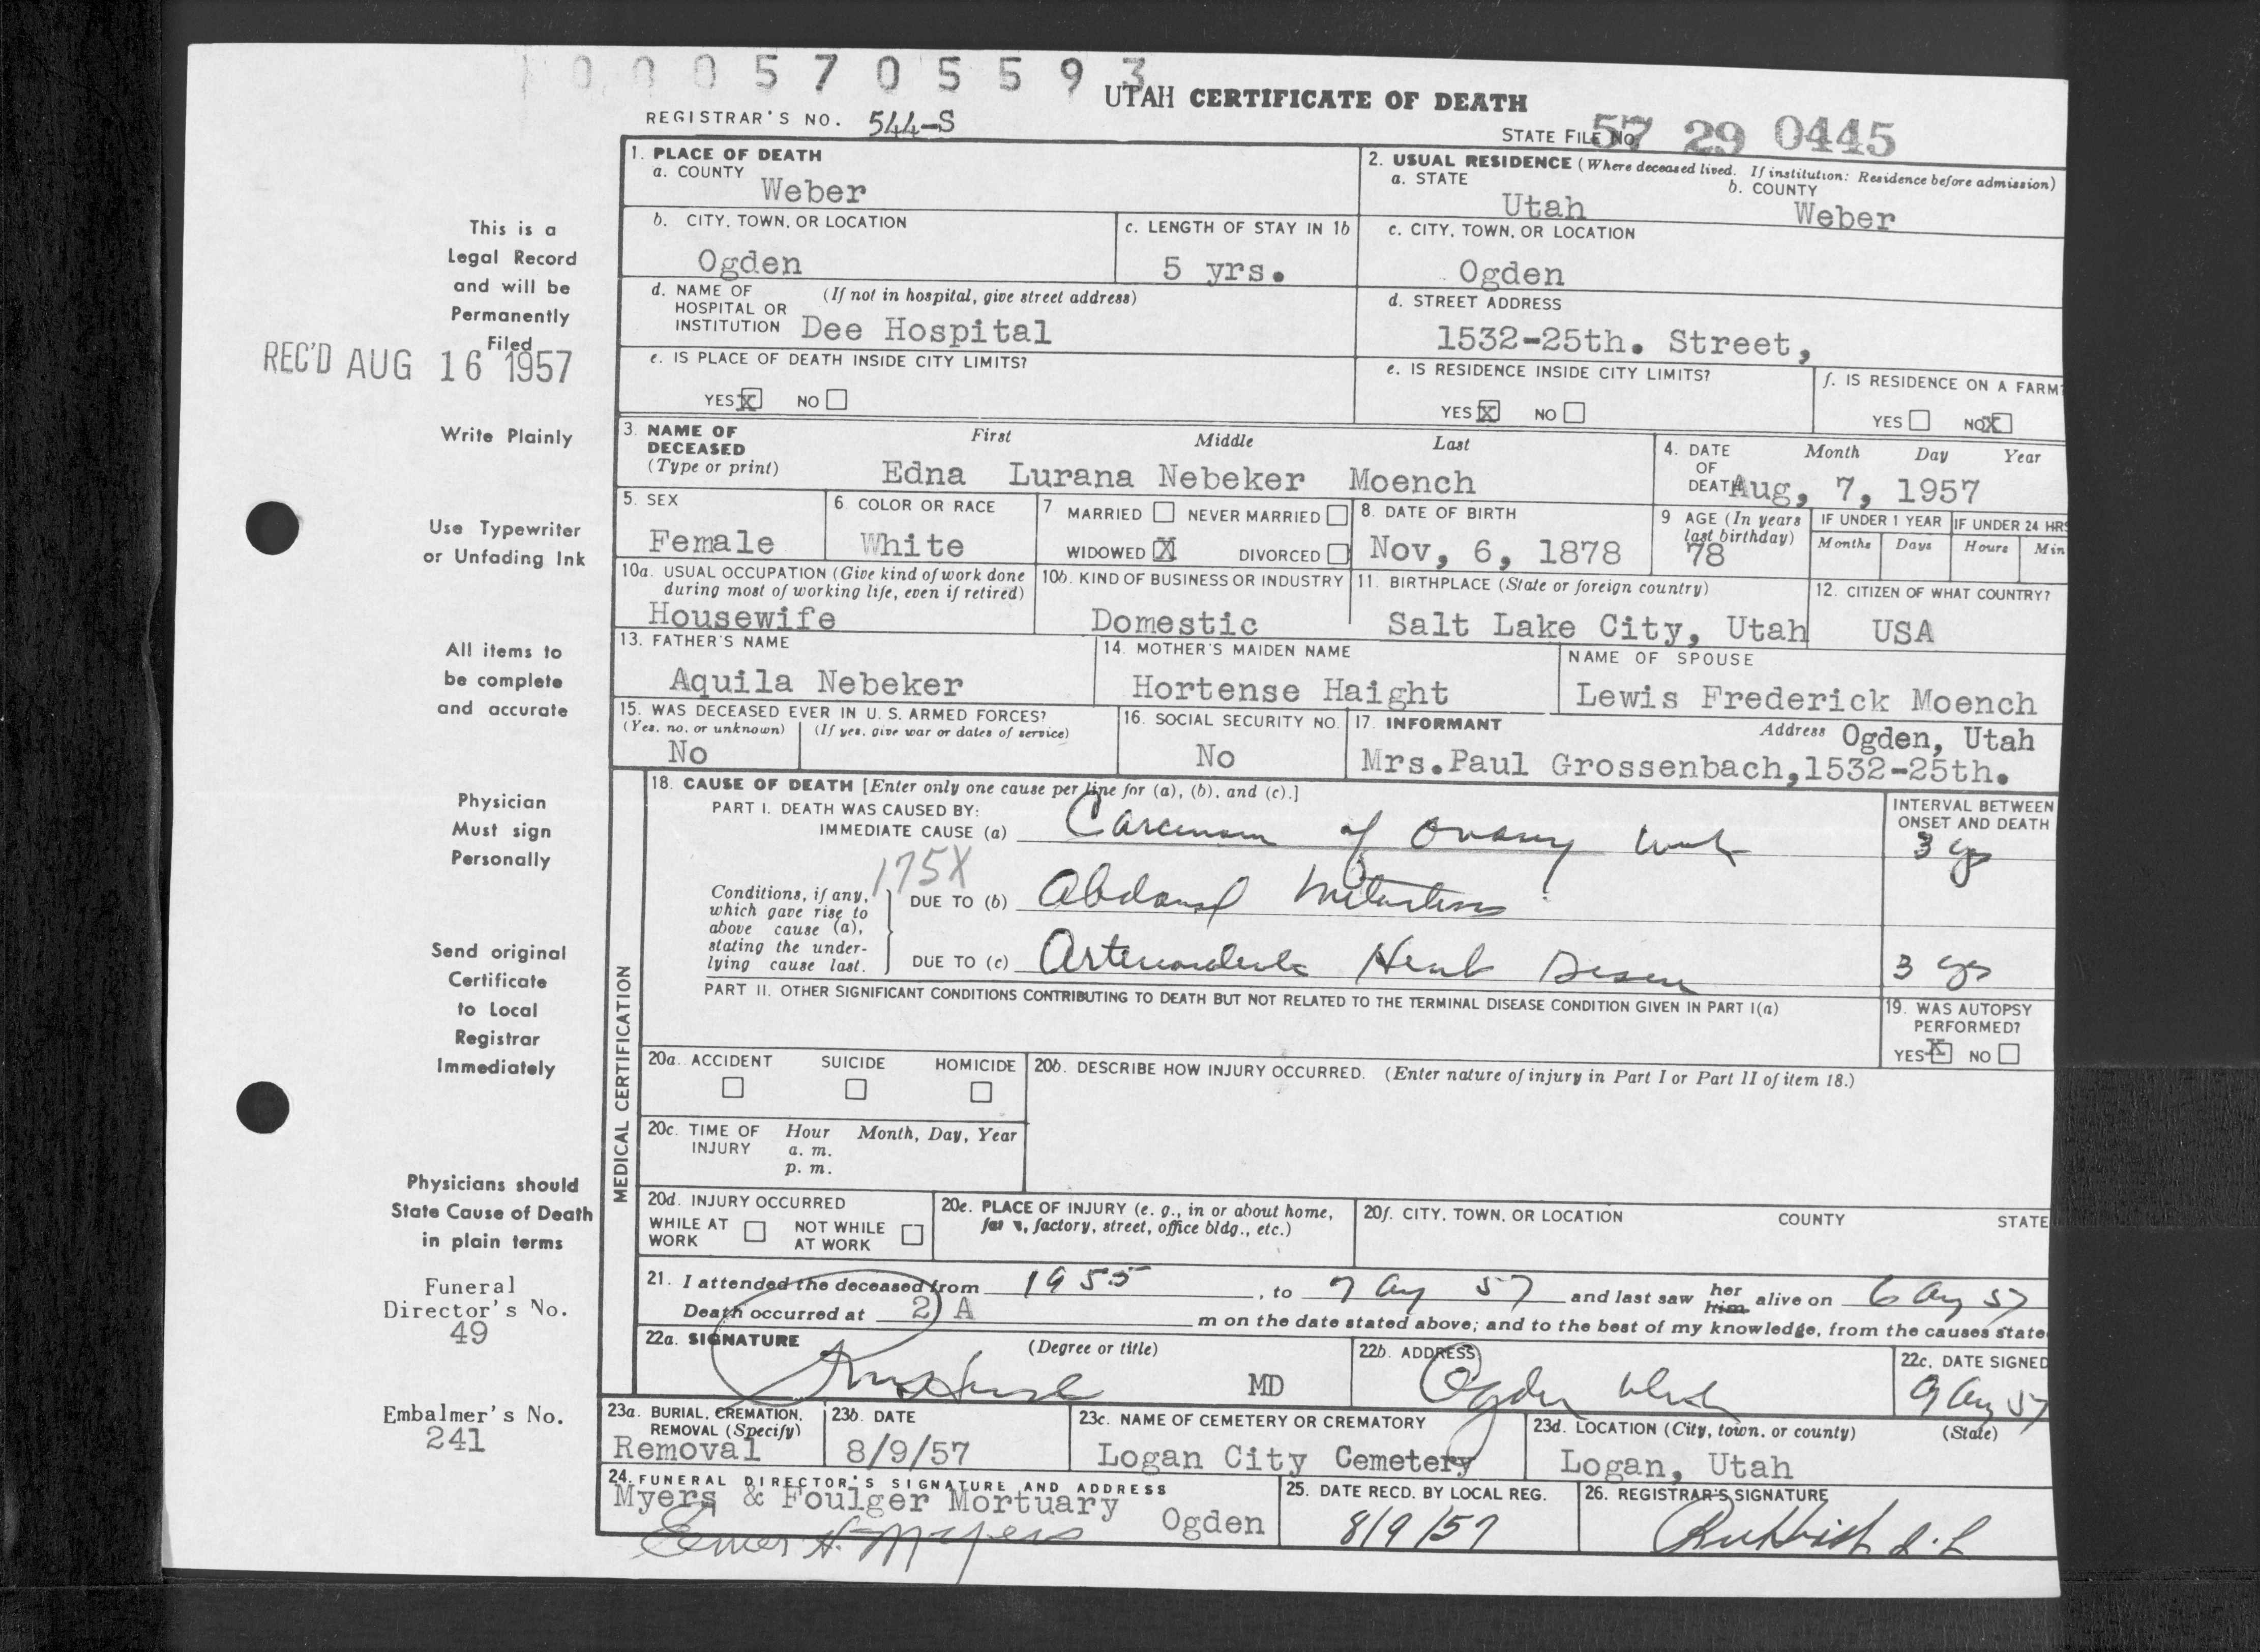 0005705593
UTAH CERTIFICATE OF DEATH
REGISTRAR'S NO. 544-S
STATE FILE NO. 57 29 0445
This is a
Legal Record
and will be
Permanently
Filed
REC'D AUG 16 1957
Write Plainly
Use Typewriter
or Unfading Ink
All items to
be complete
and accurate
Physician
Must sign
Personally
Send original
Certificate
to Local
Registrar
Immediately
Physicians should
State Cause of Death
in plain terms
Funeral
Director's No.
49
Embalmer's No.
241
1. PLACE OF DEATH
a. COUNTY
Weber
2. USUAL RESIDENCE (Where deceased lived. If institution: Residence before admission)
a. STATE
Utah
b. COUNTY
Weber
b. CITY, TOWN, OR LOCATION
Ogden
c. LENGTH OF STAY IN 1b
5 yrs.
c. CITY, TOWN, OR LOCATION
Ogden
d. NAME OF HOSPITAL OR INSTITUTION (If not in hospital, give street address)
Dee Hospital
d. STREET ADDRESS
1532-25th. Street,
e. IS PLACE OF DEATH INSIDE CITY LIMITS?
YES X NO
e. IS RESIDENCE INSIDE CITY LIMITS?
YES X NO
f. IS RESIDENCE ON A FARM?
YES NO X
3. NAME OF DECEASED (Type or print)
First Middle Last
Edna Lurana Nebeker Moench
4. DATE OF DEATH Month Day Year
Aug, 7, 1957
5. SEX
Female
6 COLOR OR RACE
White
7 MARRIED NEVER MARRIED
WIDOWED X DIVORCED
8. DATE OF BIRTH
Nov, 6, 1878
9 AGE (In years last birthday)
78
IF UNDER 1 YEAR IF UNDER 24 HRS
Months Days Hours Min
10a. USUAL OCCUPATION (Give kind of work done during most of working life, even if retired)
Housewife
10b. KIND OF BUSINESS OR INDUSTRY
Domestic
11. BIRTHPLACE (State or foreign country)
Salt Lake City, Utah
12. CITIZEN OF WHAT COUNTRY?
USA
13. FATHER'S NAME
Aquila Nebeker
14. MOTHER'S MAIDEN NAME
Hortense Haight
NAME OF SPOUSE
Lewis Frederick Moench
15. WAS DECEASED EVER IN U. S. ARMED FORCES?
(Yes, no, or unknown) (If yes, give war or dates of service)
No
16. SOCIAL SECURITY NO.
No
17. INFORMANT Address Ogden, Utah
Mrs.Paul Grossenbach,1532-25th.
MEDICAL CERTIFICATION
18. CAUSE OF DEATH [Enter only one cause per line for (a), (b), and (c).]
PART I. DEATH WAS CAUSED BY:
IMMEDIATE CAUSE (a) Carcinoma of Ovary with
INTERVAL BETWEEN ONSET AND DEATH
3 yrs
175X
Conditions, if any, which gave rise to above cause (a), stating the underlying cause last.
DUE TO (b) Abdominal Metastases
DUE TO (c) Arteriosclerotic Heart Disease
3 yrs
PART II. OTHER SIGNIFICANT CONDITIONS CONTRIBUTING TO DEATH BUT NOT RELATED TO THE TERMINAL DISEASE CONDITION GIVEN IN PART I(a)
19. WAS AUTOPSY PERFORMED?
YES X NO
20a. ACCIDENT SUICIDE HOMICIDE
20b. DESCRIBE HOW INJURY OCCURRED. (Enter nature of injury in Part I or Part II of item 18.)
20c. TIME OF INJURY Hour Month, Day, Year
a. m.
p. m.
20d. INJURY OCCURRED
WHILE AT WORK NOT WHILE AT WORK
20e. PLACE OF INJURY (e. g., in or about home, farm, factory, street, office bldg., etc.)
20f. CITY, TOWN, OR LOCATION COUNTY STATE
21. I attended the deceased from 1955, to 7 Aug 57 and last saw her him alive on 6 Aug 57
Death occurred at 2 A m on the date stated above; and to the best of my knowledge, from the causes state
22a. SIGNATURE (Degree or title)
MD
22b. ADDRESS
Ogden Utah
22c. DATE SIGNED
9 Aug 57
23a. BURIAL, CREMATION, REMOVAL (Specify)
Removal
23b. DATE
8/9/57
23c. NAME OF CEMETERY OR CREMATORY
Logan City Cemetery
23d. LOCATION (City, town, or county) (State)
Logan, Utah
24. FUNERAL DIRECTOR'S SIGNATURE AND ADDRESS
Myers & Foulger Mortuary Ogden
Elmer H. Myers
25. DATE RECD. BY LOCAL REG.
8/9/57
26. REGISTRAR'S SIGNATURE